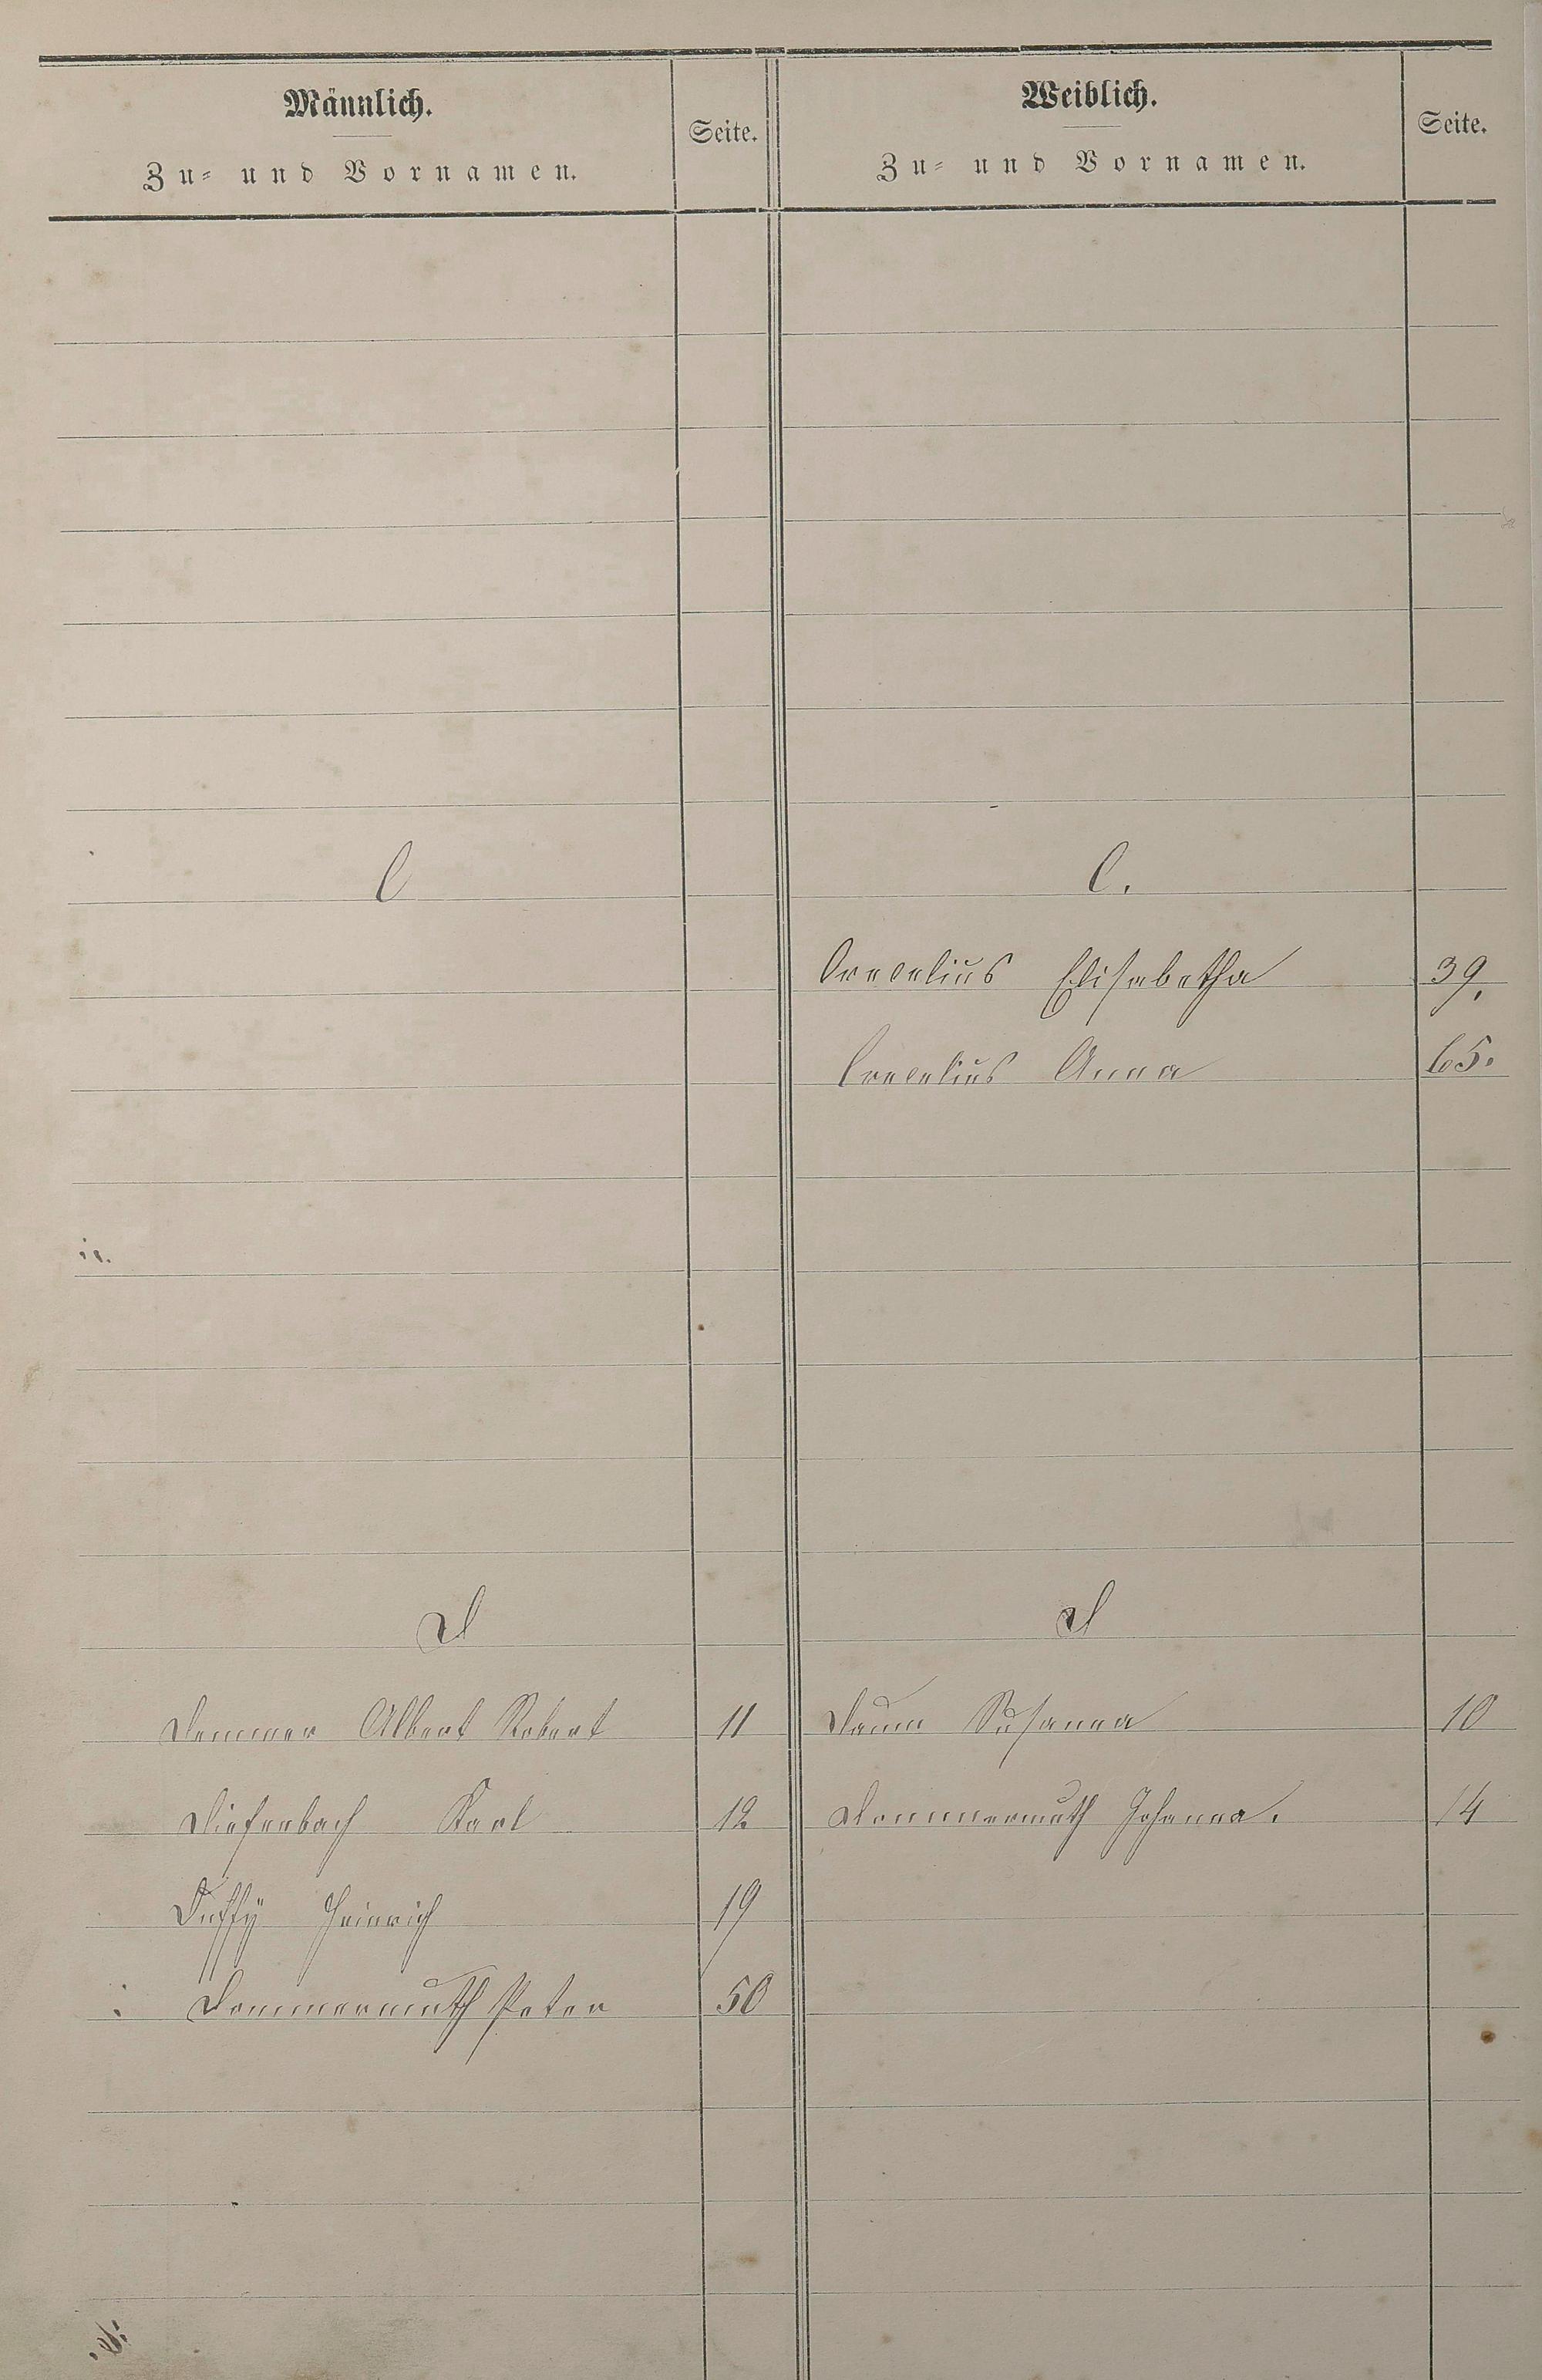 Männlich.
Zu- und Vornamen.
Seite.
Weiblich.
Zu- und Vornamen.
Seite.
C
C.
Crecelius Elisabetha 39.
Crecelius Anna 65.
D
D
Demmer Albert Robert 11
Daum Susanna 10
Diefenbach Karl 12
Dommermuth Johanna. 14
Duffÿ Heinrich 19
Dommermuth Peter 50